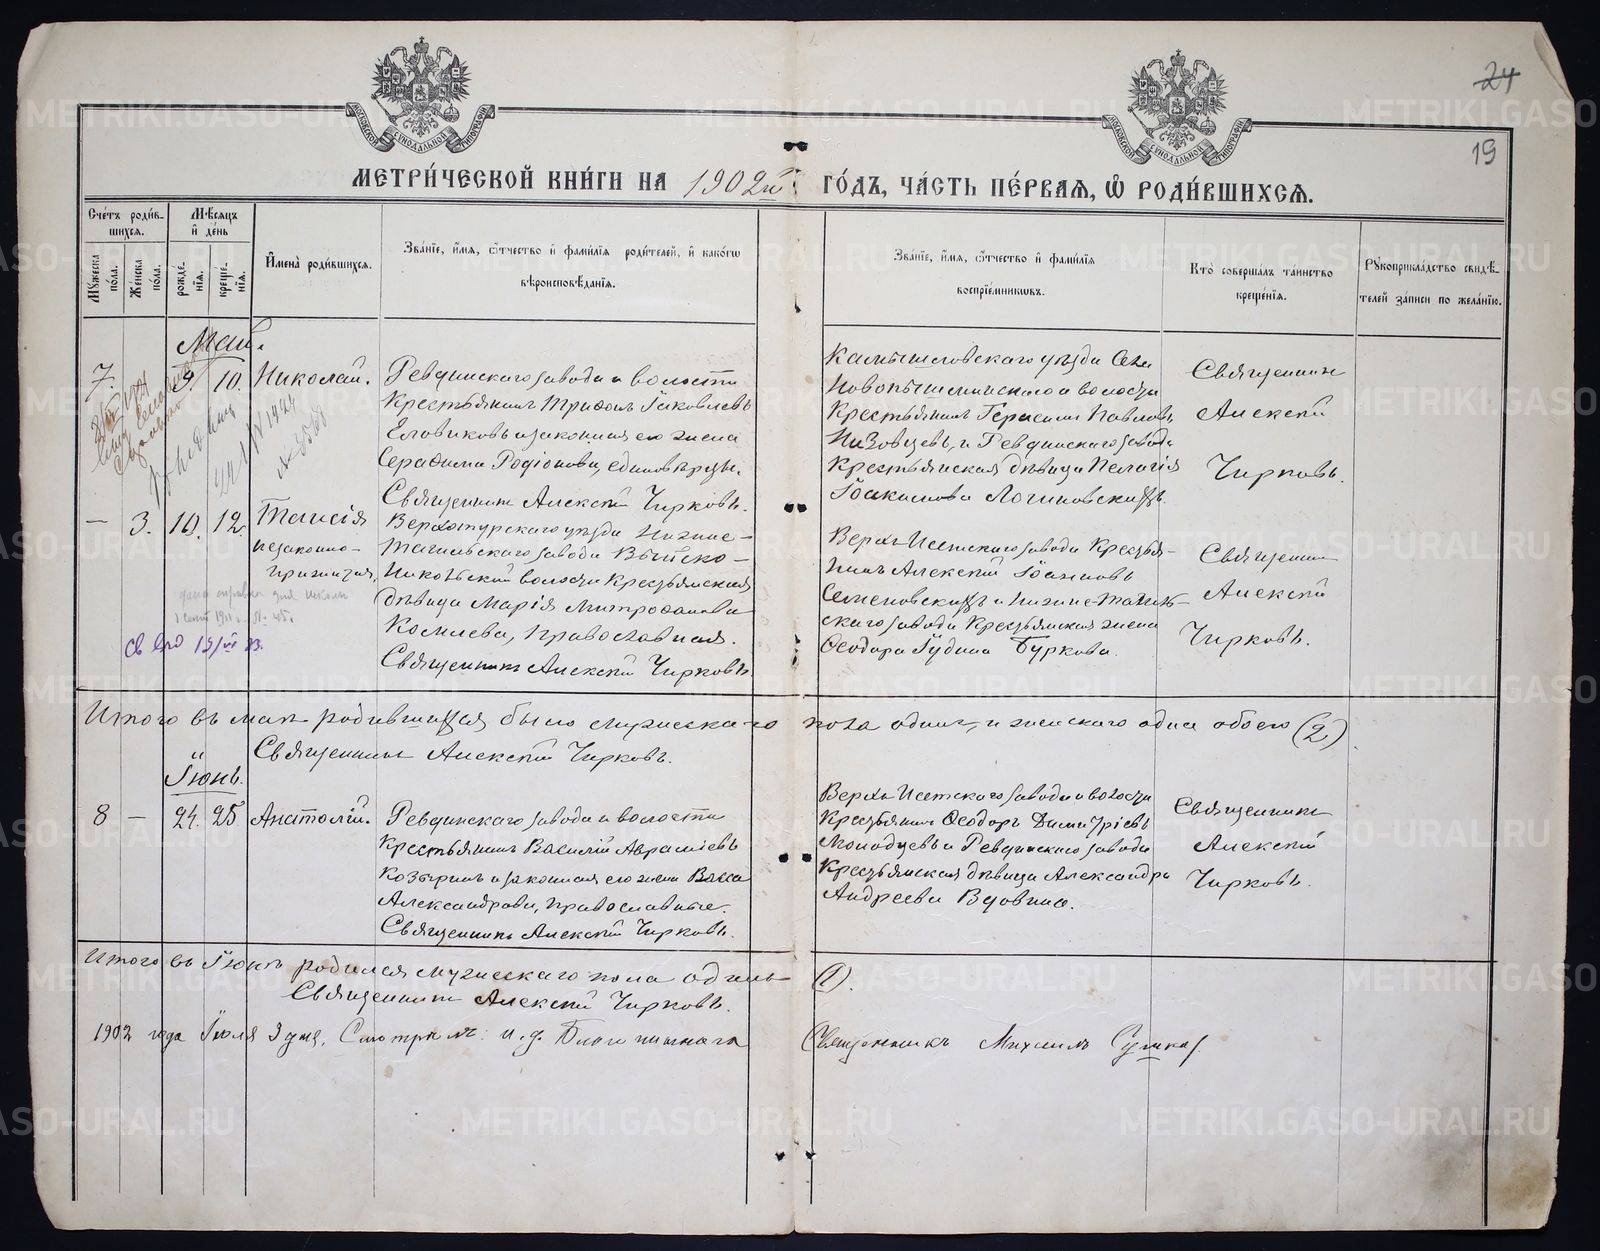 МОСКОВСКОЙ СУНОДАЛЬНОЙ ТИПОГРАФІИ
МОСКОВСКОЙ СУНОДАЛЬНОЙ ТИПОГРАФІИ
24
19
МЕТРИ́ЧЕСКОЙ КНИ́ГИ НА 1902й ГО́ДЪ, ЧА́СТЬ ПЕ́РВАЯ, Ѿ РОДИ́ВШИХСѦ.
Сче́тъ роди́в-
шихсѧ.
Мꙋ́жеска по́ла.
Же́нска по́ла.
Мѣ́сѧцъ
и҆ де́нь
рожде́-
нїѧ.
креще́-
нїѧ.
И҆мена̀ роди́вшихсѧ.
Зва́нїе, и҆́мѧ, ѻ҆́тчество и҆ фами́лїѧ роди́телей, и҆ како́гѡ
вѣроисповѣ́данїѧ.
Зва́нїе, и҆́мѧ, ѻ҆́тчество и҆ фами́лїѧ
воспрїе́мникѡвъ.
Кто̀ соверша́лъ та́инство
креще́нїѧ.
Рꙋкоприкла́дство свидѣ́-
телей за́писи по жела́нїю.
Май.
7. 9. 10. Николай.
Ревдинскаго завода и волости
Крестьянинъ Трифонъ Іаковлевъ
Еловиковъ и законная его жена
Серафима Родіонова, единовѣрцы.
Священникъ Алексій Чирковъ.
Камышловскаго уѣзда Села
Новопышминскаго и волости
Крестьянинъ Герасимъ Павловъ
Низовцевъ, и Ревдинскаго завода
Крестьянская дѣвица Пелагія
Іоакимова Логиновскихъ.
Священникъ
Алексій
Чирковъ.
— 3. 10. 12. Таисія
незаконно-
прижитая,
Верхотурскаго уѣзда Нижне-
Тагильскаго завода Выйско-
Никольской волости Крестьянская
дѣвица Марія Митрофанова
Комлева, православная.
Священникъ Алексій Чирковъ.
Верхъ-Исетскаго завода Крестья-
нинъ Алексій Іоанновъ
Семеновскихъ и Нижне-Тагиль-
скаго завода Крестьянская жена
Ѳеодора Іудина Буркова.
Священникъ
Алексій
Чирковъ.
Итого въ маѣ родившихся было мужескаго пола одинъ, и женскаго одна обоего (2).
Священникъ Алексій Чирковъ.
Іюнь.
8 — 24. 25 Анатолій.
Ревдинскаго завода и волости
Крестьянинъ Василій Авраміевъ
Козыринъ и законная его жена Васса
Александрова, православные.
Священникъ Алексій Чирковъ.
Верхъ-Исетскаго завода и волости
Крестьянинъ Ѳеодоръ Димитріевъ
Молодцевъ и Ревдинскаго завода
Крестьянская дѣвица Александра
Андреева Вдовина.
Священникъ
Алексій
Чирковъ.
Итого въ Іюнѣ родился мужескаго пола одинъ (1).
Священникъ Алексій Чирковъ.
1902 года Іюля 9 дня, Смотрѣлъ: и. д. Благочиннаго Священникъ Михаилъ
METRIKI.GASO-URAL.RU